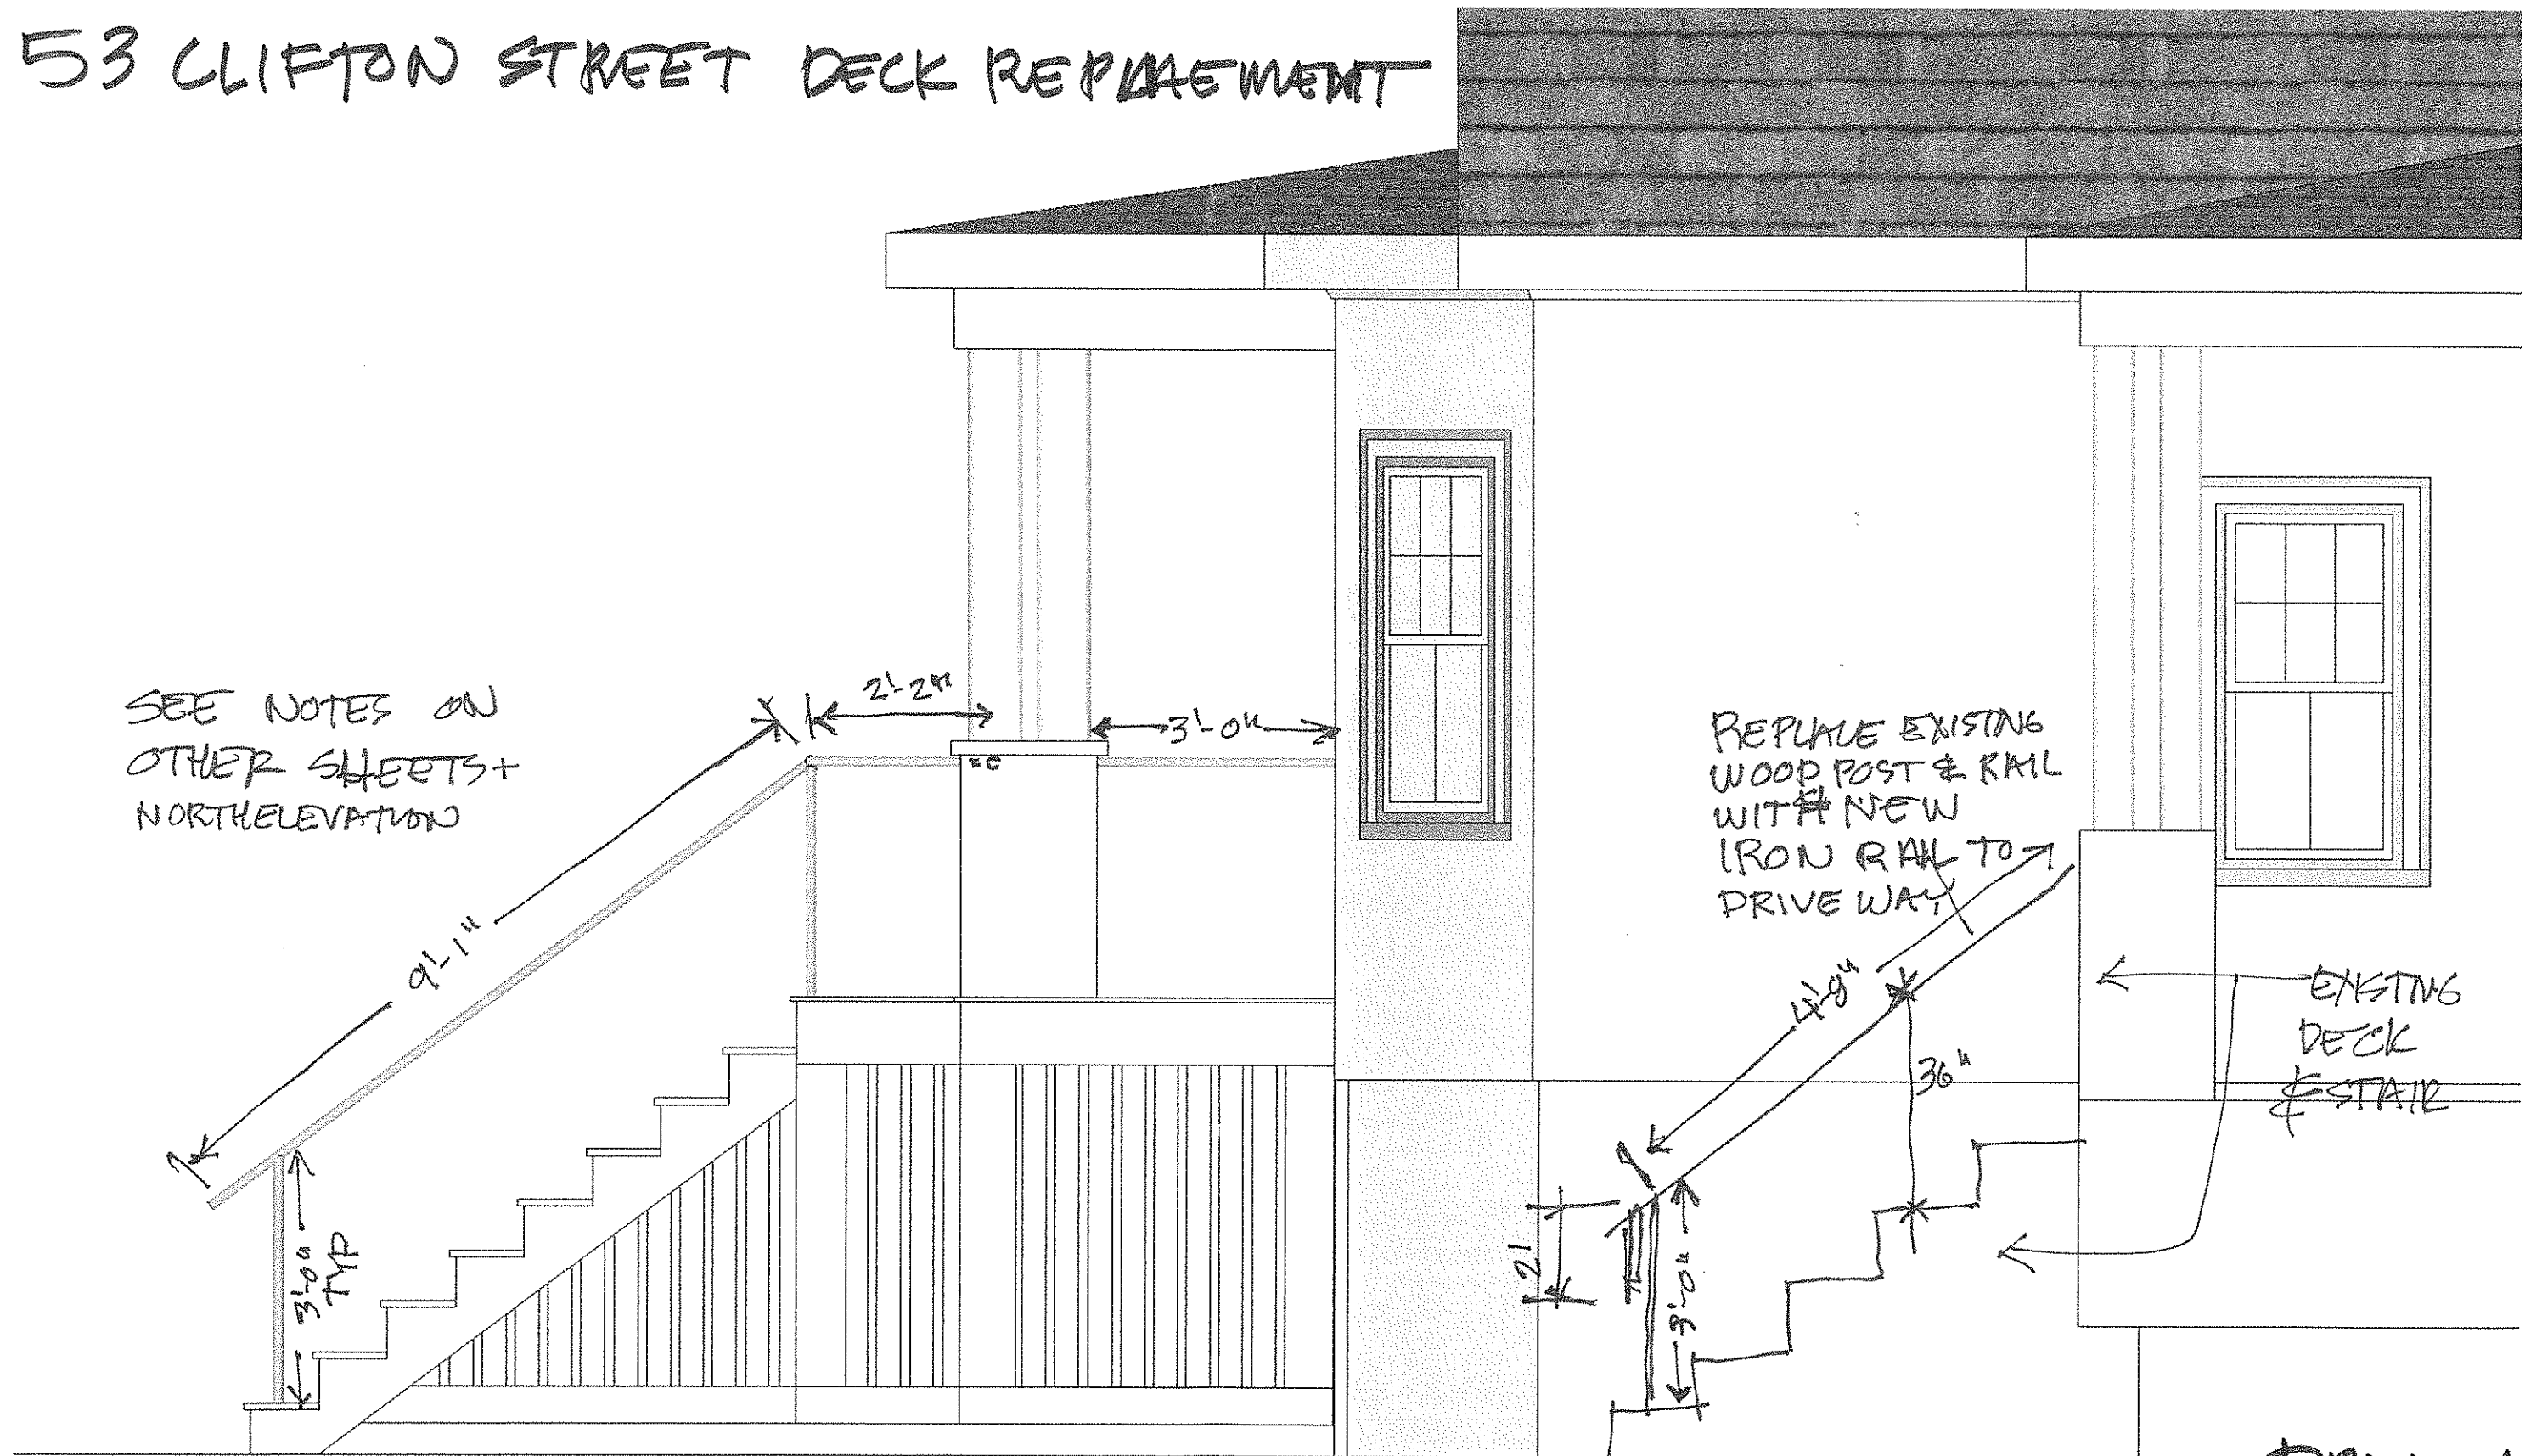 53 CLIFTON STREET DECK REPLAEMENT
SEE NOTES ON
OTHER SHEETS+
NORTH ELEVATION
2'-2"
3'-0"
9'-1"
3'-0"
TYP
REPLALE EXISTING
WOOD POST & RAIL
WITH NEW
IRON RAIL TO
DRIVEWAY
4'-8"
36"
3'-0"
EXISTING
DECK
& STAIR